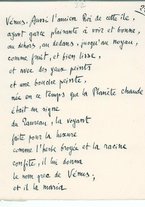 Vénus. Avait l'ancien Roi de cette île,
ayant garde plaisante à voir et bonne,
au dehors, au dedans, jusqu'au noyau,
comme fruit, et bien lisse,
et avec des yeux peints
et une bouche peinte,
née en ce temps que la Planète chaude
était en signe
du Taureau, la voyant
faite pour la luxure
comme l'herbe broyée et la racine
confite, il lui donna
le nom grec de Vénus,
et il la maria